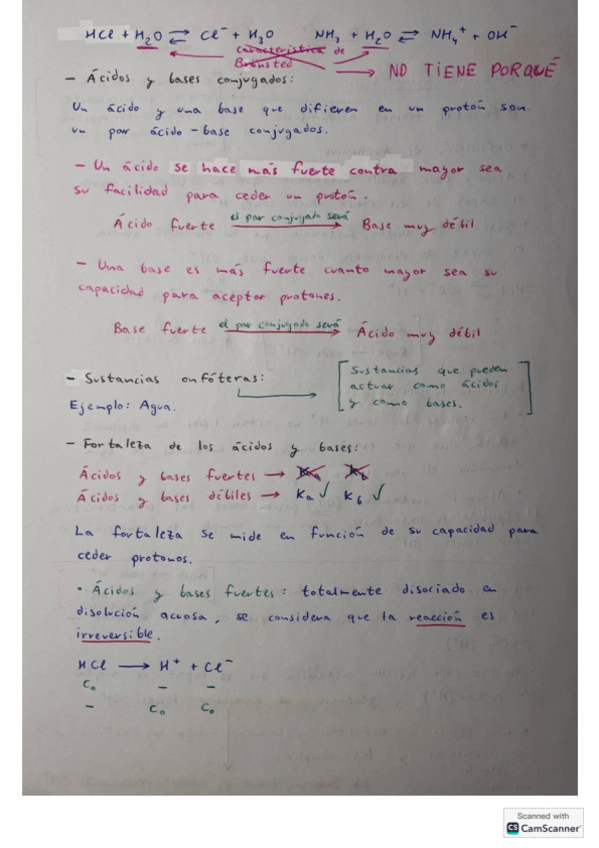 HCl + H₂O ⇄ Cl⁻ + H₃O NH₃ + H₂O ⇄ NH₄⁺ + OH⁻
característica de
Brönsted → NO TIENE PORQUÉ
- Ácidos y bases conjugados:
Un ácido y una base que difieren en un protón son
un par ácido-base conjugados.
- Un ácido se hace más fuerte contra mayor sea
su facilidad para ceder un protón.
Ácido fuerte el par conjugado será → Base muy débil
- Una base es más fuerte cuanto mayor sea su
capacidad para aceptar protones.
Base fuerte el par conjugado será → Ácido muy débil
- Sustancias anfóteras: → [Sustancias que pueden
actuar como ácidos
y como bases.]
Ejemplo: Agua.
- Fortaleza de los ácidos y bases:
Ácidos y bases fuertes → Ka Kb
Ácidos y bases débiles → Ka ✓ Kb ✓
La fortaleza se mide en función de su capacidad para
ceder protonos.
• Ácidos y bases fuertes: totalmente disociado en
disolución acuosa, se considera que la reacción es
irreversible.
HCl → H⁺ + Cl⁻
C₀ - -
- C₀ C₀
Scanned with
CS CamScanner